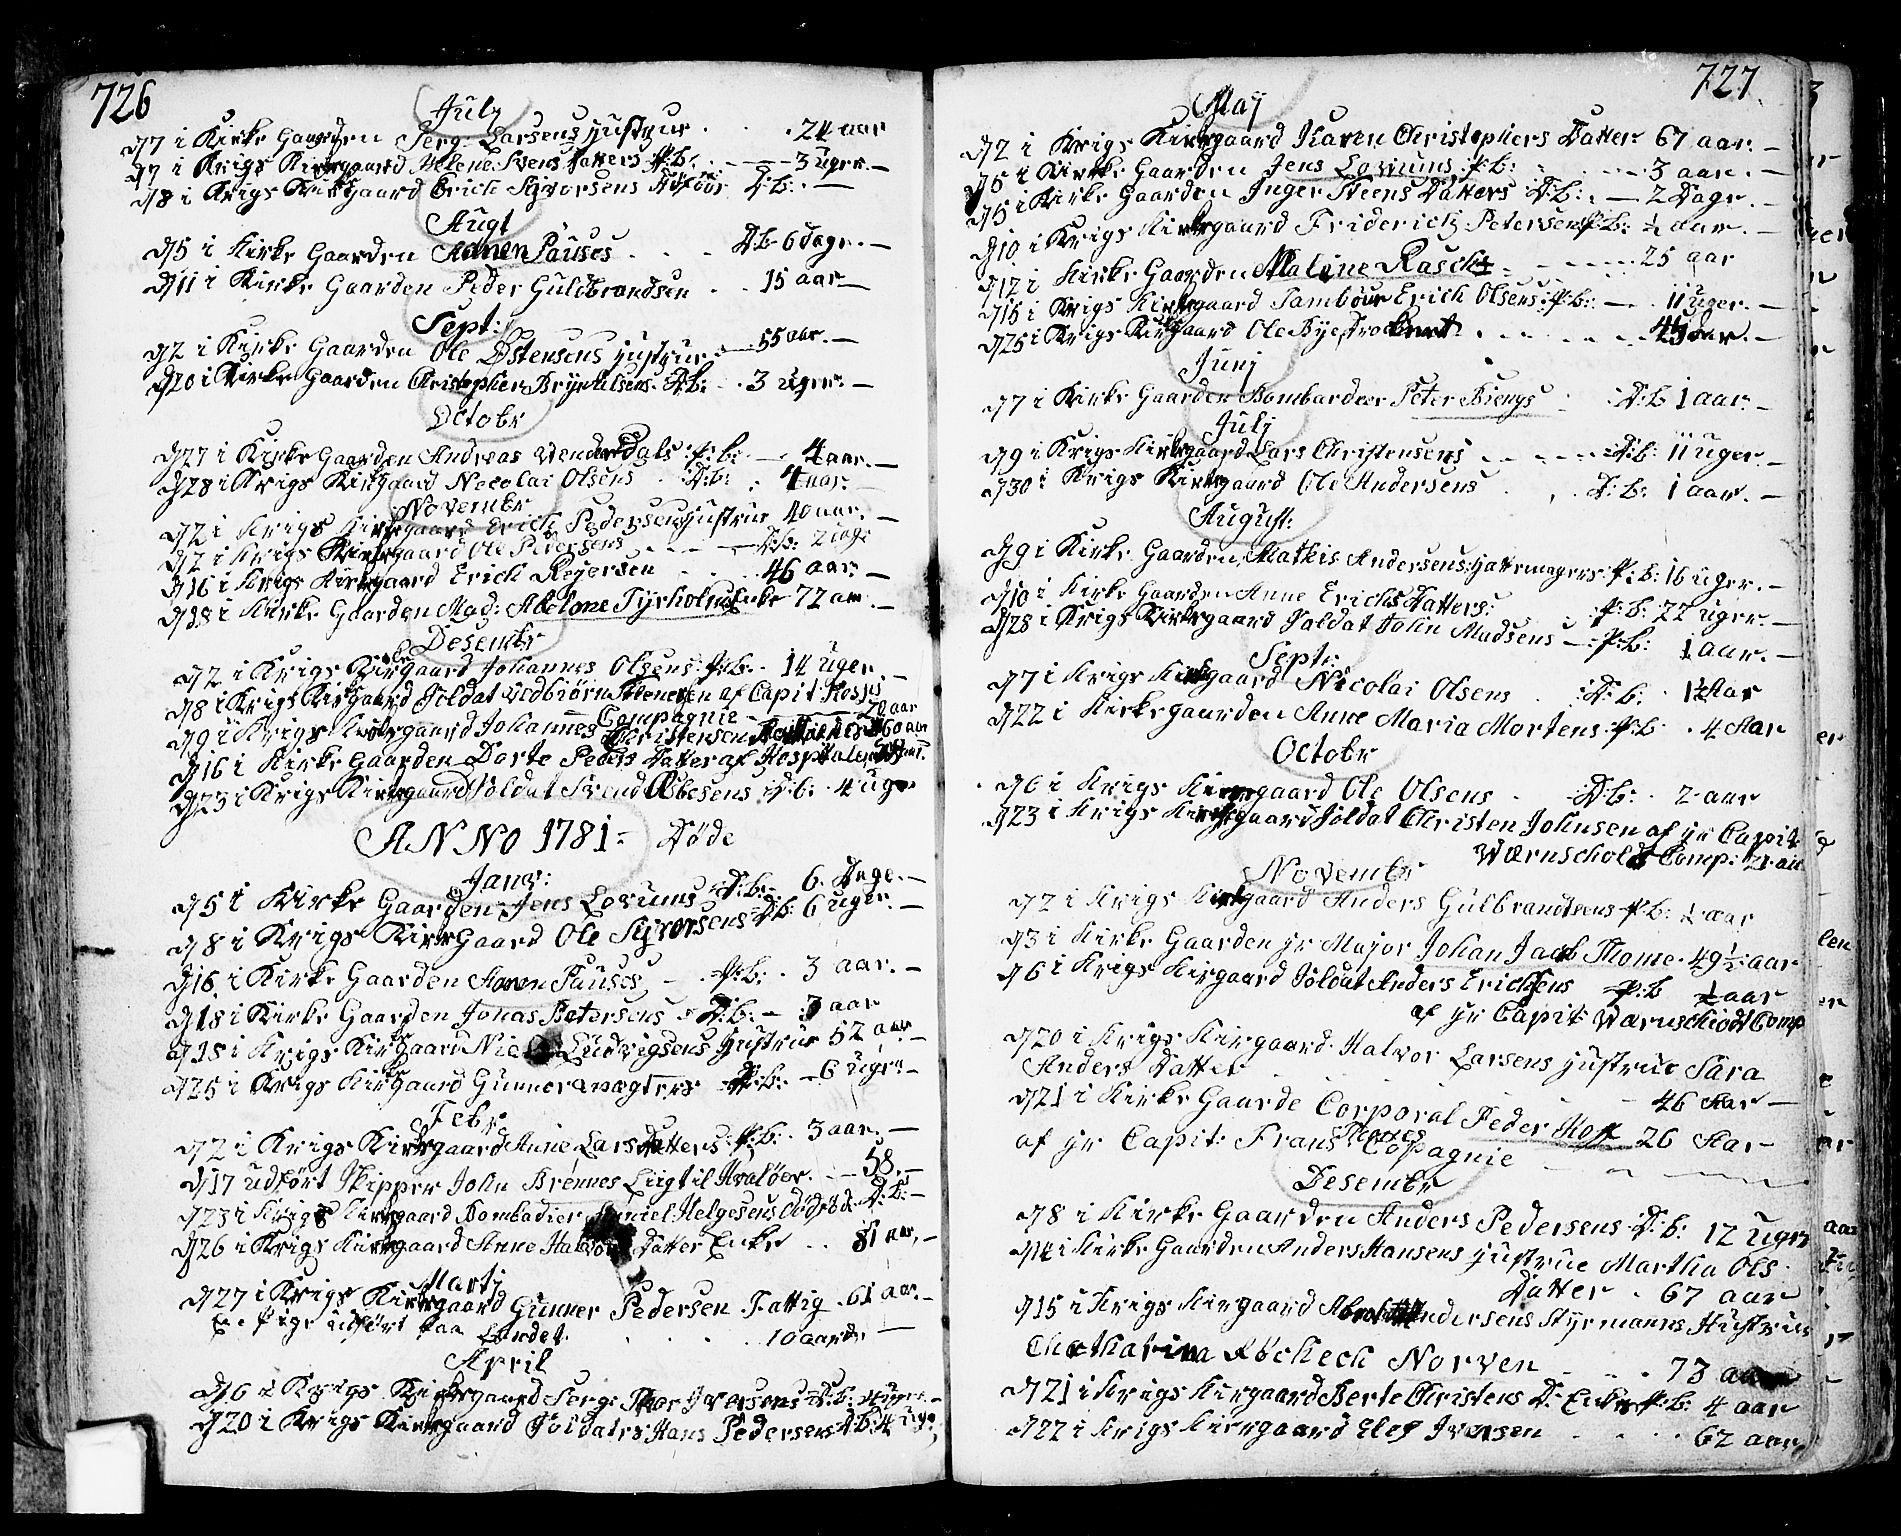 726
July
d 7 i Kirke Gaarden Serg. Larsens Hustrue . . . 24 aar
d 7 i Krigs Kirkgaard Helene Svens Datters P.b. — 3 uger. —
d 8 i Krigs Kirkgaard Erich Syvorsens Dødfød D:b: . —
Augt
d 5 i Kirke Gaarden Pauses . . . D.b. 6 dage. —
d 11 i Kirke Gaarden Peder Guldbrandsen . . 15 aar —
Sept:
d 2 i Kirke Gaarden Ole Østensens Hustrue. — 55 aar. —
d 20 i Kirke Gaarden Christopher Brynilsens D.b: . . 3 uger. —
Octobr
d 27 i Kirke Gaarden Andreas :P:b: . — 4 aar. —
d 28 i Krigs Kirkgaard Necolai Olsens . D:b: . 4 aar. —
Novembr
d 2 i Krigs Kirkgaard Erich Pedersens Hustrue 40 aar. —
d 2 i Krigs Kirkgaard Ole Pedersens . . . — D:b: 2 dage
d 16 i Krigs Kirkgaard Erich Rejersen . . . 46 aar. —
d 18 i Kirke Gaarden Mad: Abelone Tyrholms Enke 72 aar. —
Desembr
d 2 i Krigs Kirkgaard Johannes Olsens :P:b. . 14 uger. —
d 8 i Krigs Kirkgaard Soldat af Capit: Hosps
Compagnie — 20 aar
d 9 i Krigs Kirkgaard Johannes Christensen 60 aar
d 16 i Kirke Gaarden Dorte Peders Datter af Hospitalet
d 23 i Krigs Kirkgaard Soldat Svend Obesens :D:b: . 4 uger
ANNO 1781 = Døde
Janv:
d 5 i Kirke Gaarden Jens Lorums :D:b: 6. Dage. —
d 8 i Krigs Kirkgaard Ole Syvorsens D:b: 6 uger. —
d 16 i Kirke Gaarden Pauses — . P:b: . 3 aar. —
d 18 i Kirke Gaarden Jonas Petersens D:b: — 3 aar
d 18 i Krigs Kirkgaard Ludvigsens Hustrue 52 aar. —
d 25 i Krigs Kirkgaard Gunner D:b: — 6 uger —
Febr
d 2 i Krigs Kirkgaard Anne Lars Datters :P:b: . 3 aar. —
d 17 udført Skipper John Brennes Liig til Hvaløer. — 58. —
d 23 i Krigs Kirkgaard Bombadier Daniel Helgesens Dødfød D:b: —
d 26 i Krigs Kirkgaard Anne Halvors Datter Enke . . 81 aar. —
Martj
d 27 i Krigs Kirkgaard Gunner Pedersen Fattig . 61 aar. —
En Pige udført paa Landet. . . . 10 aar —
April
d 6 i Krigs Kirkgaard Serg: Iversens :D:b: uger —
d 20 i Krigs Kirkgaard Soldaters Hans Pedersens D:b: 4 uger
727
Maij
d 2 i Krigs Kirkgaard Karen Christophers Datter 67 aar. —
d 5 i Kirke Gaarden Jens Lorums :P:b: . . . 3 aar. —
d 5 i Kirke Gaarden Inger Steens Datters D:b: . — 2 Dage. —
d 10 i Krigs Kirkgaard Friderich Petersens P:b: ½ aar. —
d 12 i Kirke Gaarden Malene Rasch . . . 25 aar
d 15 i Krigs Kirkgaard Tambour Erich Olsens :P:b: — . 11 uger. —
d 25 i Krigs Kirkgaard Ole Bye . . . 45 aar. —
Junj
d 7 i Kirke Gaarden Bombardeer Peter Biengs :D:b 1 aar. —
Julj
d 9 i Krigs Kirkgaard Lars Christensens . . . D:b: 11 uger. —
d 30 i Krigs Kirkgaard Ole Andersens . . D:b: 1 aar. —
August:
d 9 i Kirke Gaarden Mathis Andersens Hattemagers P:b: 16 uger. —
d 10 i Kirke Gaarden Anne Erichs Datters: P:b: 22 uger. —
d 28 i Krigs Kirkgaard Soldat John Madsens — P:b: 1 aar. —
Septr:
d 7 i Krigs Kirkgaard Nicolai Olsens . :D:b: . 1½ Aar
d 22 i Kirkegaarden Anne Maria Mortens :P:b . 4 Aar
Octobr
d 6 i Krigs Kirkgaard Ole Olsens . :D:b: . 2 aar
d 23 i Krigs Kirkgaard Soldat Christen Johnsen af Hr Capit
Wærnscholdt Comp: 21 aar
Novembr
d 2 i Krigs Kirkgaard Anders Gulbrandsens P:b: ½ aar
d 3 i Kirke Gaarden Hr Major Johan Jacob Thome. 49½ aar
d 6 i Krigs Kirgaard Soldat Anders Erichsens P:b ½ aar
af Hr Capit: Wærnschiodt Comp
d 20 i Krigs Kirgaard. Halvor Larsens Hustrue Sara
Anders Datter . . . 46 Aar —
d 21 i Kirke Gaarde Corporal Peder 26 Aar —
af Hr Capit: Frans Copagnie — —
Desembr
d 8 i Kirke Gaarden Anders Pedersens :D:b: 12 uger
d 14 i Kirke Gaarden Anders Hansens Hustrue Martha Ols
Datter . 67 aar
d 15 i Krigs Kirgaard Andersens Styrmanns Hustrue
Chatharina Norven — . . 73 aar
d 21 i Krigs Kirgaard Berte Christens D: Enke P:b: 4 aar
d 22 i Krigs Kirrgaard Elef Iversen . . . 62 aar